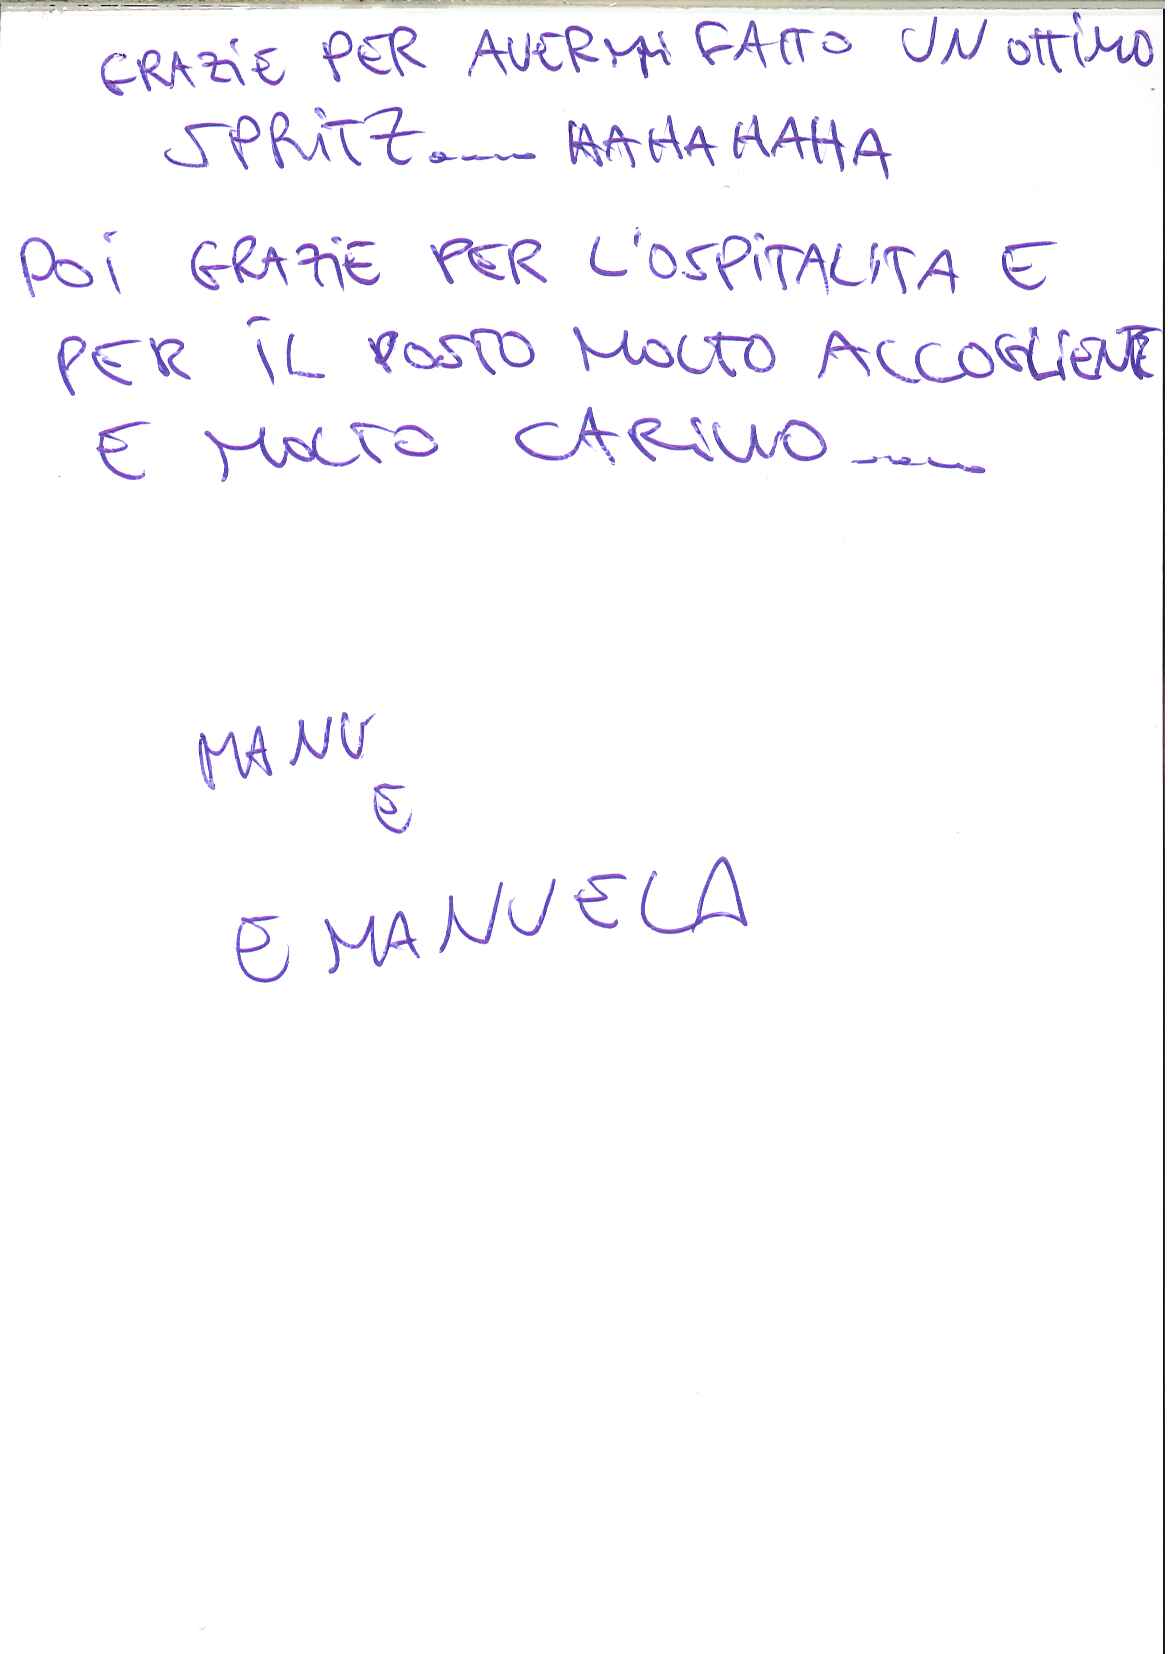 GRAZiE PER AVERMi FATTO UN OTTiMO
SPRiTZ..... HAHAHAHA
POi GRAZiE PER L'OSPiTALITA E
PER iL POSTO MOLTO ACCOGLiENTE
E MOLTO CARiNO.....
MANU
E
EMANUELA